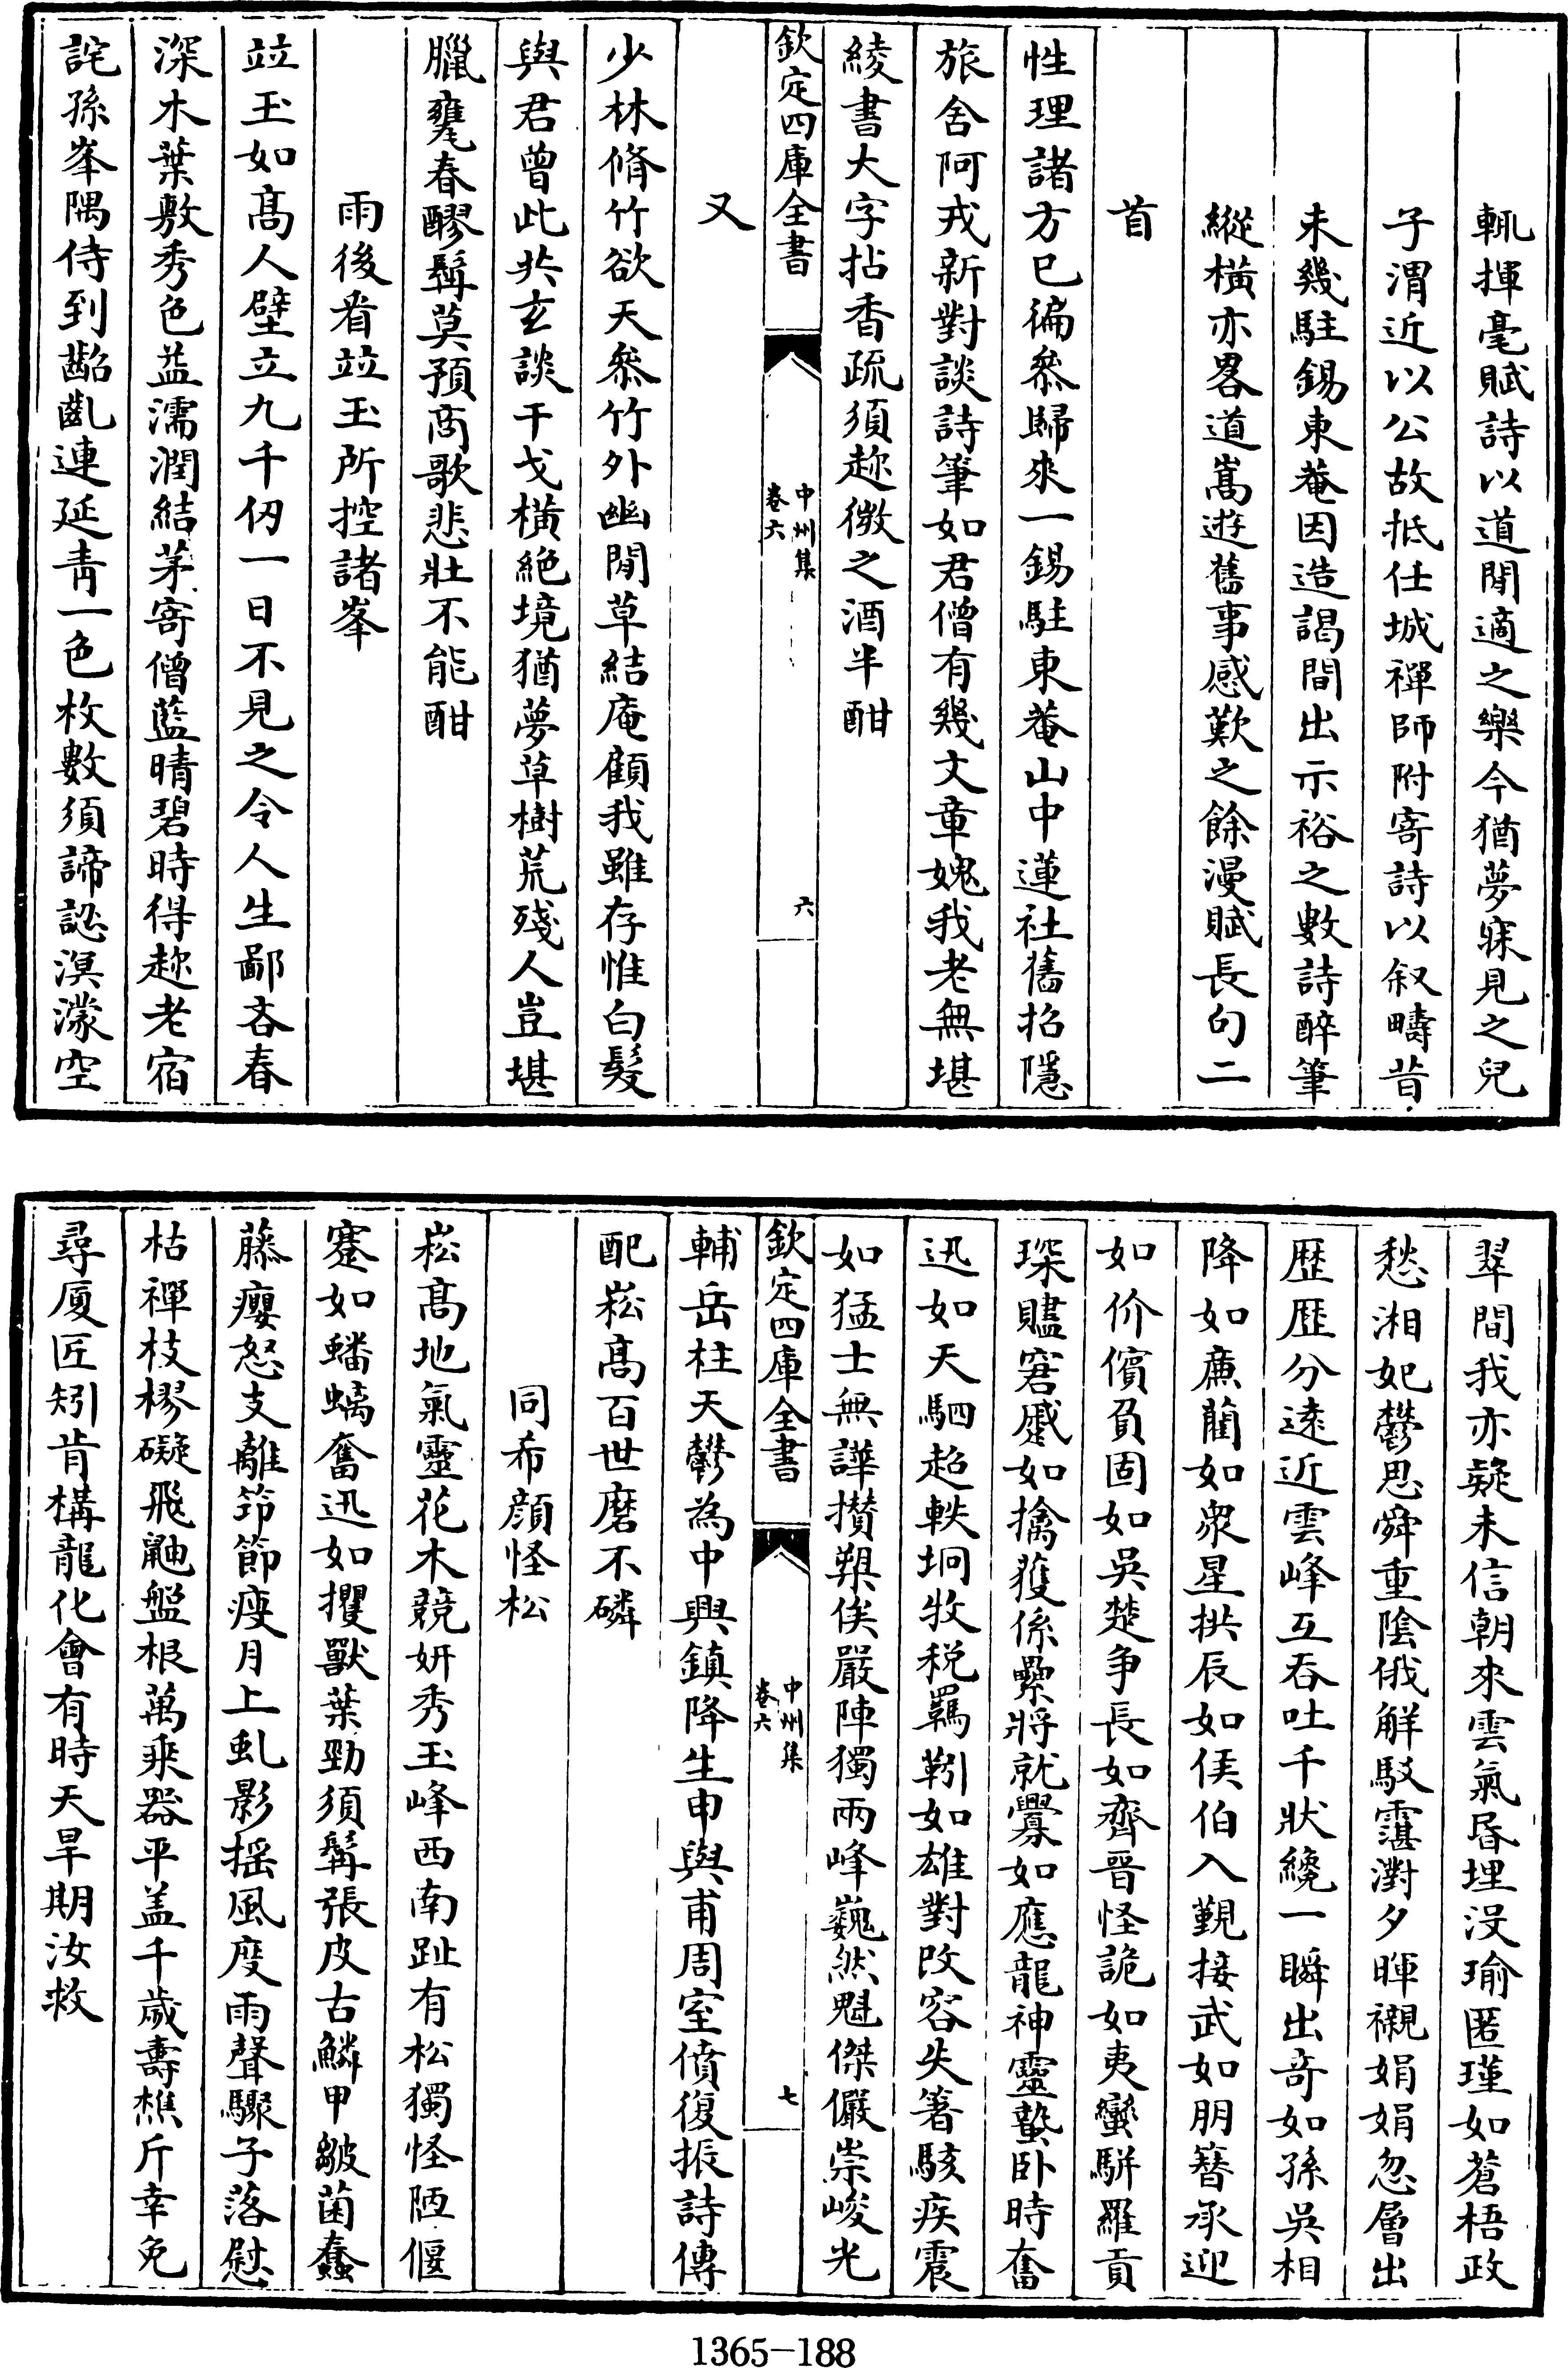 輒揮毫賦詩以道閒適之樂今猶夢寐見之兒
子渭近以公故抵任城禪師附寄詩以叙疇昔
未幾駐錫東菴因造謁間出示裕之數詩醉筆
縱橫亦畧道嵩遊舊事感歎之餘漫賦長句二
首
性理諸方已徧叅歸來一錫駐東菴山中蓮社舊招隱
旅舍阿戎新對談詩筆如君僧有幾文章媿我老無堪
綾書大字拈香疏須趂微之酒半酣
欽定四庫全書
中州集
卷六
六
又
少林脩竹欲天叅竹外幽閒草結庵顧我雖存惟白髮
與君曾此共玄談干戈橫絕境猶夢草樹荒殘人豈堪
臘甕春醪髯莫預商歌悲壯不能酣
雨後看竝玉所控諸峯
竝玉如髙人壁立九千仞一日不見之令人生鄙吝春
深木葉敷秀色益濡潤結茅寄僧藍晴碧時得趂老宿
詫孫峯隅侍到齠齔連延靑一色枚數須諦認溟濛空
翠間我亦疑未信朝來雲氣昏埋没瑜匿瑾如蒼梧政
愁湘妃鬱思舜重陰俄解駁靄對夕暉襯娟娟忽層出
歷歷分遠近雲峰互吞吐千狀纔一瞬出奇如孫吳相
降如亷藺如衆星拱辰如侯伯入覲接武如朋簪承迎
如价儐負固如吳楚争長如齊晉怪詭如夷蠻駢羅貢
琛贐窘蹙如擒獲係纍將就釁如應龍神靈蟄卧時奮
迅如天駟超軼坰牧税羈靷如雄對改容失箸駭疾震
如猛士無譁攅槊俟嚴陣獨兩峰巍然魁傑儼崇峻光
欽定四庫全書
中州集
卷六
七
輔岳柱天鬱為中興鎮降生申與甫周室僨復振詩傳
配崧髙百世磨不磷
同希顔怪松
崧髙地氣靈花木競妍秀玉峰西南趾有松獨怪陋偃
蹇如蟠螭奮迅如攫獸葉勁須髯張皮古鱗甲皺菌蠢
藤癭怒支離笻節瘦月上虬影摇風度雨聲驟子落慰
枯禪枝樛礙飛鼬盤根萬乘器平盖千歲壽樵斤幸免
尋厦匠矧肯構龍化會有時天旱期汝救
1365-188